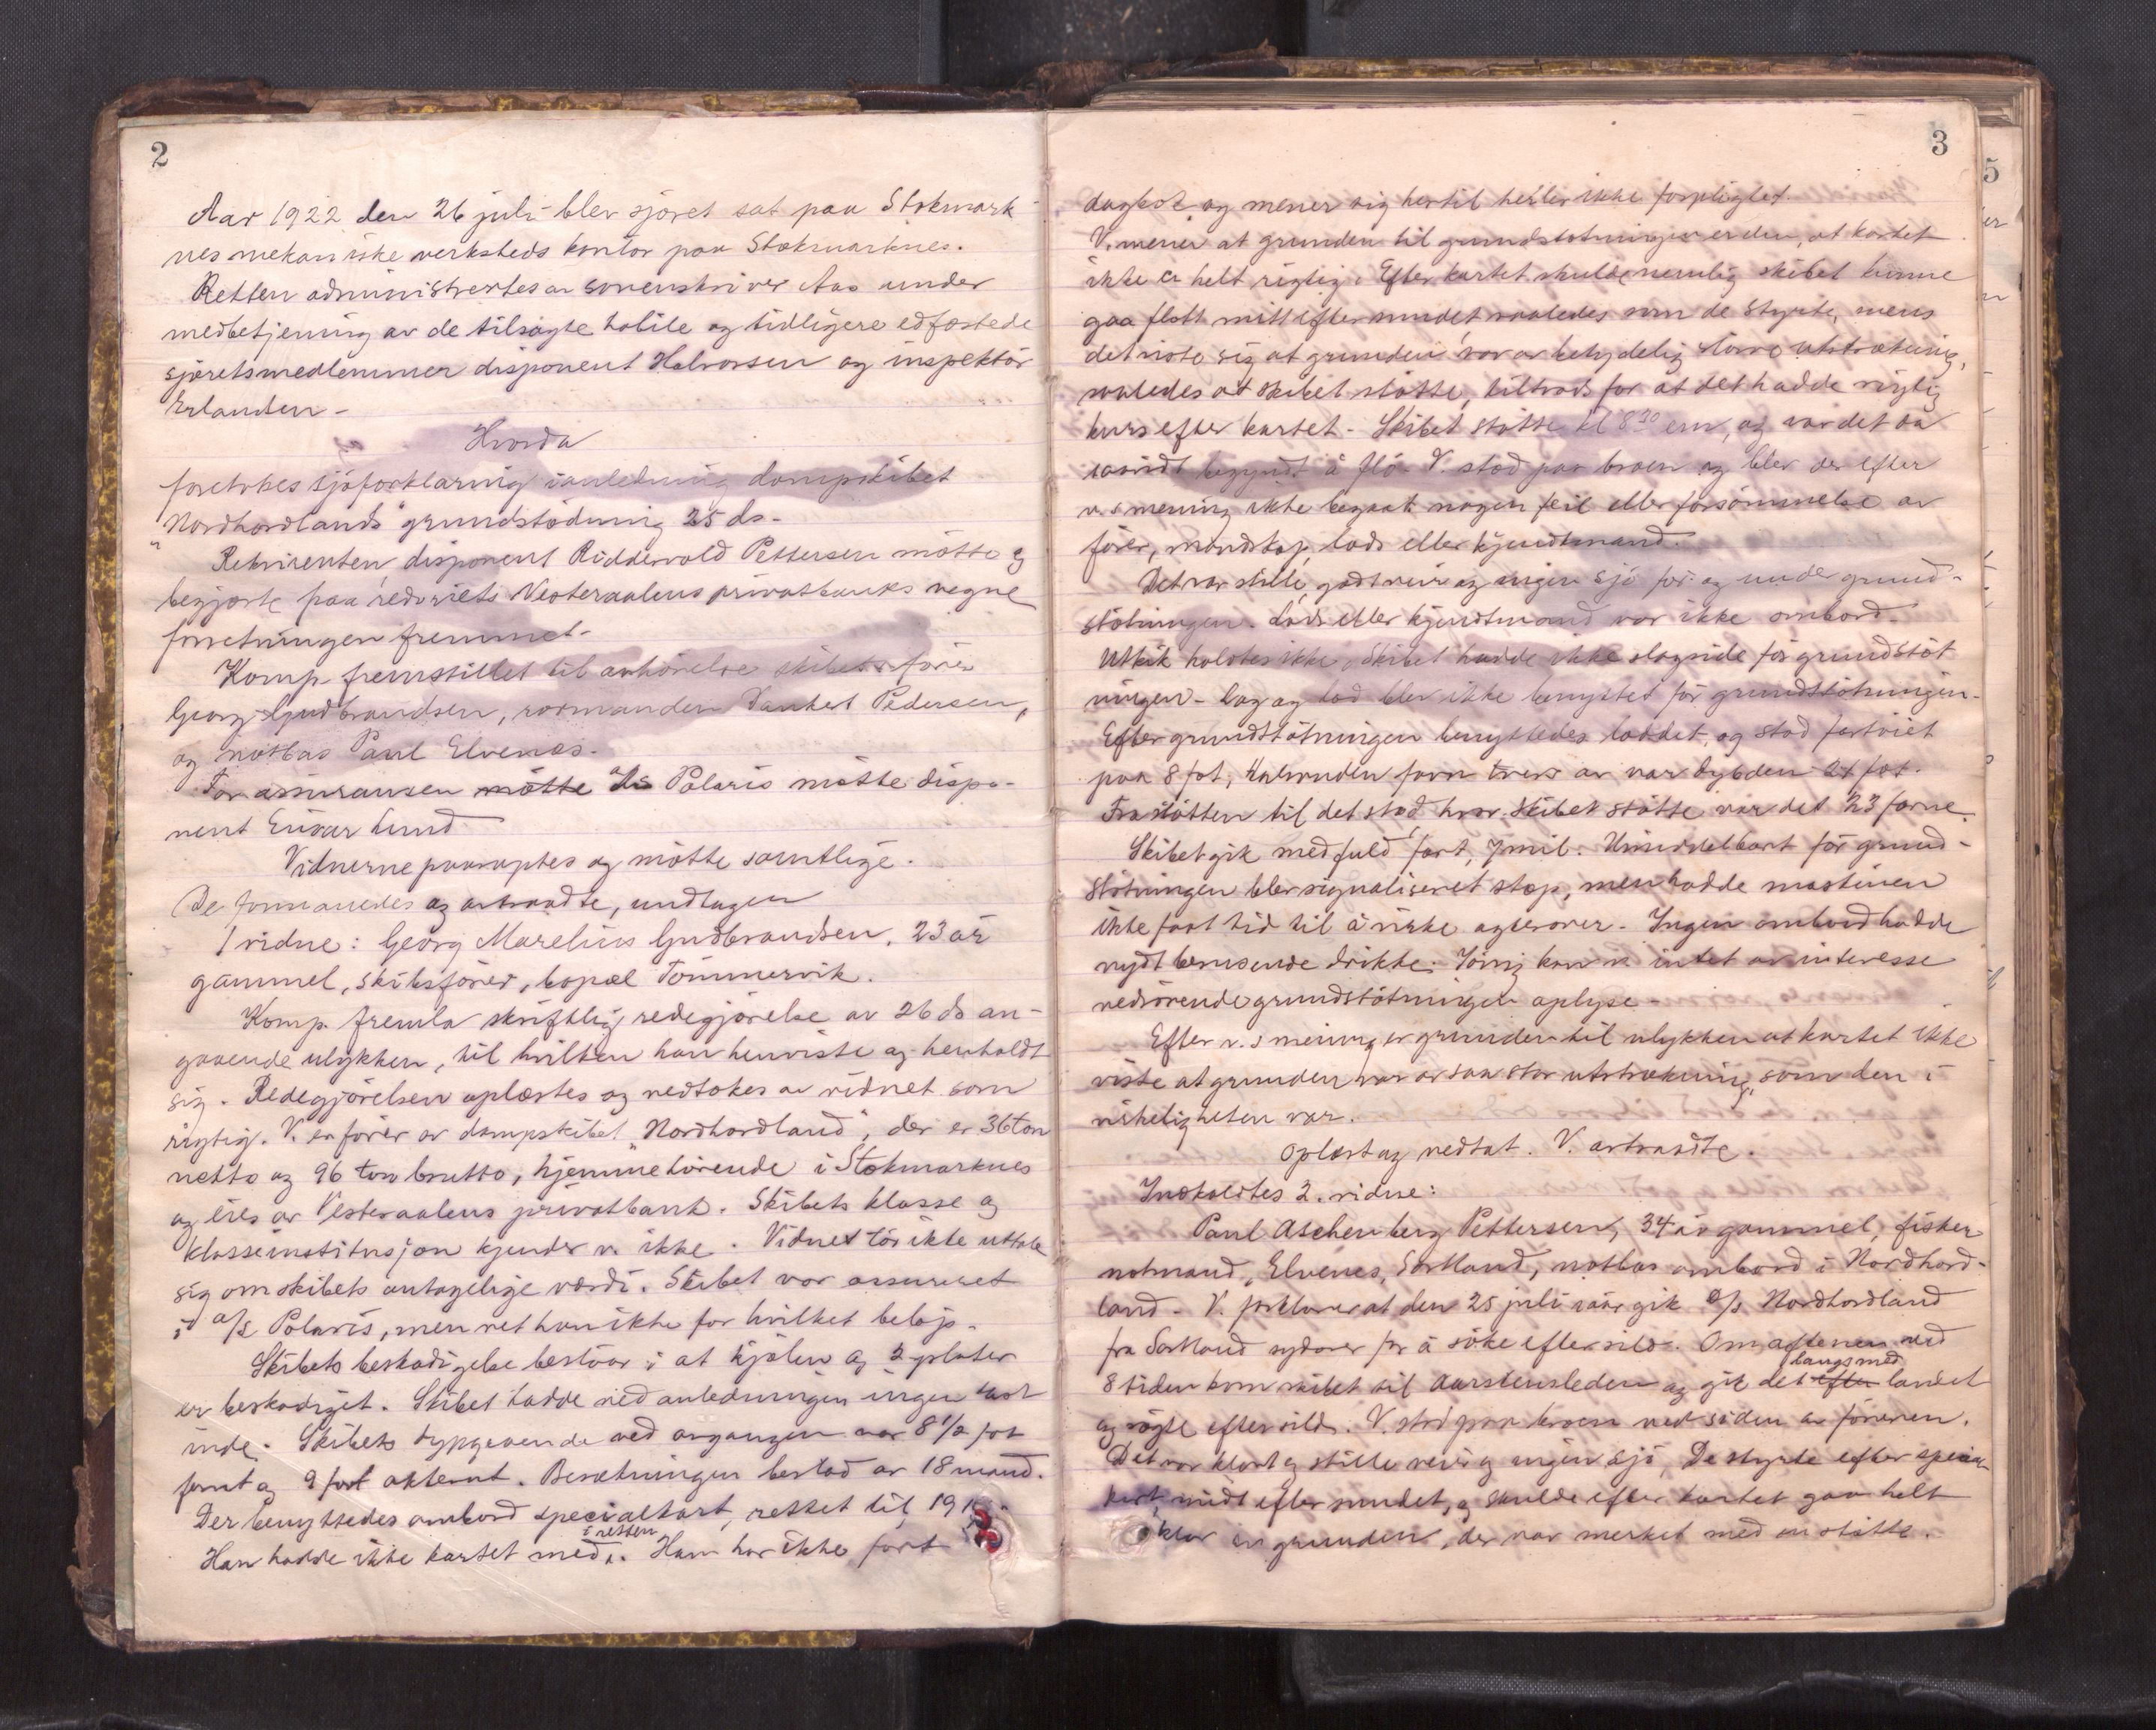 2
Aar 1922 den 26 juli blev sjøret sat paa Stokmark
nes mekaniske verksteds kontor paa Stokmarknes.
Retten administrertes av sorenskriver Aas under
medbetjening av de tilsagte habile og tidligere edfæstede
sjøretsmedlemmer disponent Halvorsen og inspektør
Erlandsen -
Hvorda
foretokes sjøforklaring i anledning dampskibet
"Nordhordlands" grundstødning 25 ds.
Rekvirenten, disponent Riddervold Pettersen møtte og
begjærte paa rederiets Vesteraalens privatbanks vegne
forretningen fremmet.
Komp. fremstillet til avhørelse skibets fører
Georg Gudbrandsen, rormanden Pedersen,
og notbas Paul Elvenes.
For assuransen møtte a/s Polaris møtte dispo-
nent Einar Lund
Vidnerne paaroptes og møtte samtlige.
De formanedes og avtraadte, undtagen
1 vidne: Georg Marelius Gudbrandsen, 23 år
gammel, skibsfører, bopæl Tömmervik.
Komp. fremla skriftlig redegjørelse av 26 ds an-
gaaende ulykken, til hvilken han henviste og henholdt
sig. Redegjørelsen oplæstes og vedtokes av vidnet som
rigtig. V. er fører av dampskibet "Nordhordland", der er 36 ton
netto og 96 ton brutto, hjemmehörende i Stokmarknes
og eies av Vesteraalens privatbank. Skibets klasse og
klasseinstitusjon kjender v. ikke. Vidnet tör ikke uttale
sig om skibets antagelige værdi. Skibet var assureret
i a/s Polaris, men vet han ikke for hvilket beløp.
Skibets beskadigelse bestaar i at kjølen og 2 plater
er beskadiget. Skibet hadde ved anledningen ingen last
inde. Skibets dypgaaende ved avgangen var 8 1/2 fot
forut og 9 fot akterut. Besetningen bestod av 18 mand.
Der benyttedes ombord specialkart, rettet til 19
Han hadde ikke kartet med i retten. Han har ikke fört
3
dagbok og mener sig hertil heller ikke forpligtet.
V. mener at grunden til grundstøtningen er den, at kartet
ikke er helt rigtig. Efter kartet skulde nemlig skibet kunne
gaa flott mitt efter sundet saaledes som de styrte, mens
det viste sig at grunden var av betydelig større utstrækning,
saaledes at skibet støtte, tiltrods for at det hadde rigtig
kurs efter kartet. Skibet støtte kl 8 30 em, og var det da
begyndt å flö. V. stod paa broen og blev der efter
v.s mening ikke begaat nogen feil eller forsömmelse av
förer, mandskap, lods eller kjendtmand.
Det var stille, godt veir og ingen sjö för og under grund-
støtningen. Lods eller kjendtmand var ikke ombord.
Utkik holdtes ikke. Skibet hadde ikke slagside för grundstöt
ningen. Log og lod blev ikke benyttet för grundstötningen.
Efter grundstötningen benyttedes loddet, og stod fartöiet
paa 8 fot, halvanden favn tvers av var dybden 21 fot.
Fra stötten til det sted, hvor skibet stötte var det 23 favne.
Skibet gik med fuld fart, 7 mil. Umiddelbart för grund-
stötningen blev signaliseret stop, men hadde maskinen
ikke faat tid til å virke agterover. Ingen ombord hadde
nydt berusende drikke. Iövrig kan v. intet av interesse
vedrörende grundstötningen oplyse.
Efter v.s mening er grunden til ulykken at kartet ikke
viste at grunden var av saa stor utstrækning, som den i
virkeligheten var.
Oplæst og vedtat. V. avtraadte.
Indkaldtes 2. vidne:
Paul Aschenberg Pettersen, 34 år gammel, fisker
notmand, Elvenes, Sortland, notbas ombord i Nordhord-
land. V. forklarer at den 25 juli iaar gik d/s Nordhordland
fra Sortland sydover for å söke efter sild. Om aftenen ved
8 tiden kom skibet til og gik det efter langs med landet
og søgte efter sild. V. stod paa broen ved siden av föreren.
Det var klart og stille veir og ingen sjö. De styrte efter special
kart, midt efter sundet, og skulde efter kartet gaa helt
klar av grunden, der var merket med en stötte.
5